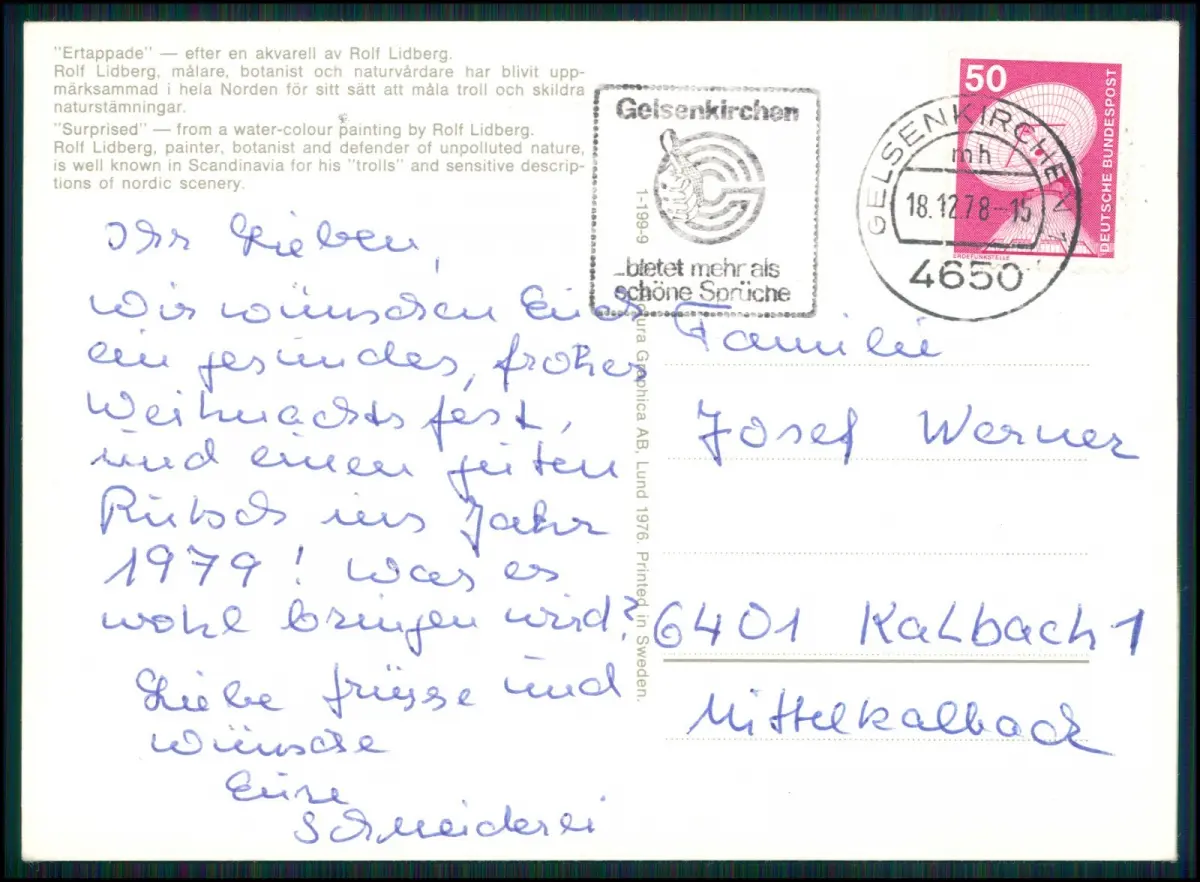 "Ertappade" — efter en akvarell av Rolf Lidberg.
Rolf Lidberg, målare, botanist och naturvårdare har blivit upp-
märksammad i hela Norden för sitt sätt att måla troll och skildra
naturstämningar.
"Surprised" — from a water-colour painting by Rolf Lidberg.
Rolf Lidberg, painter, botanist and defender of unpolluted nature,
is well known in Scandinavia for his "trolls" and sensitive descrip-
tions of nordic scenery.
Ihr Lieben,
wir wünschen Euch
ein gesundes, frohes
Weihnachtsfest,
und einen guten
Rutsch ins Jahr
1979! Was es
wohl bringen wird?
Liebe Grüsse und
Wünsche
Eure
Schneiderei
1-199-9
Graphica AB, Lund 1976. Printed in Sweden.
Gelsenkirchen
...bietet mehr als
schöne Sprüche
GELSENKIRCHEN 1
mh
18.12.78-15
4650
50
DEUTSCHE BUNDESPOST
ERDEFUNKSTELLE
Familie
Josef Werner
6401 Kalbach 1
Mittelkalbach